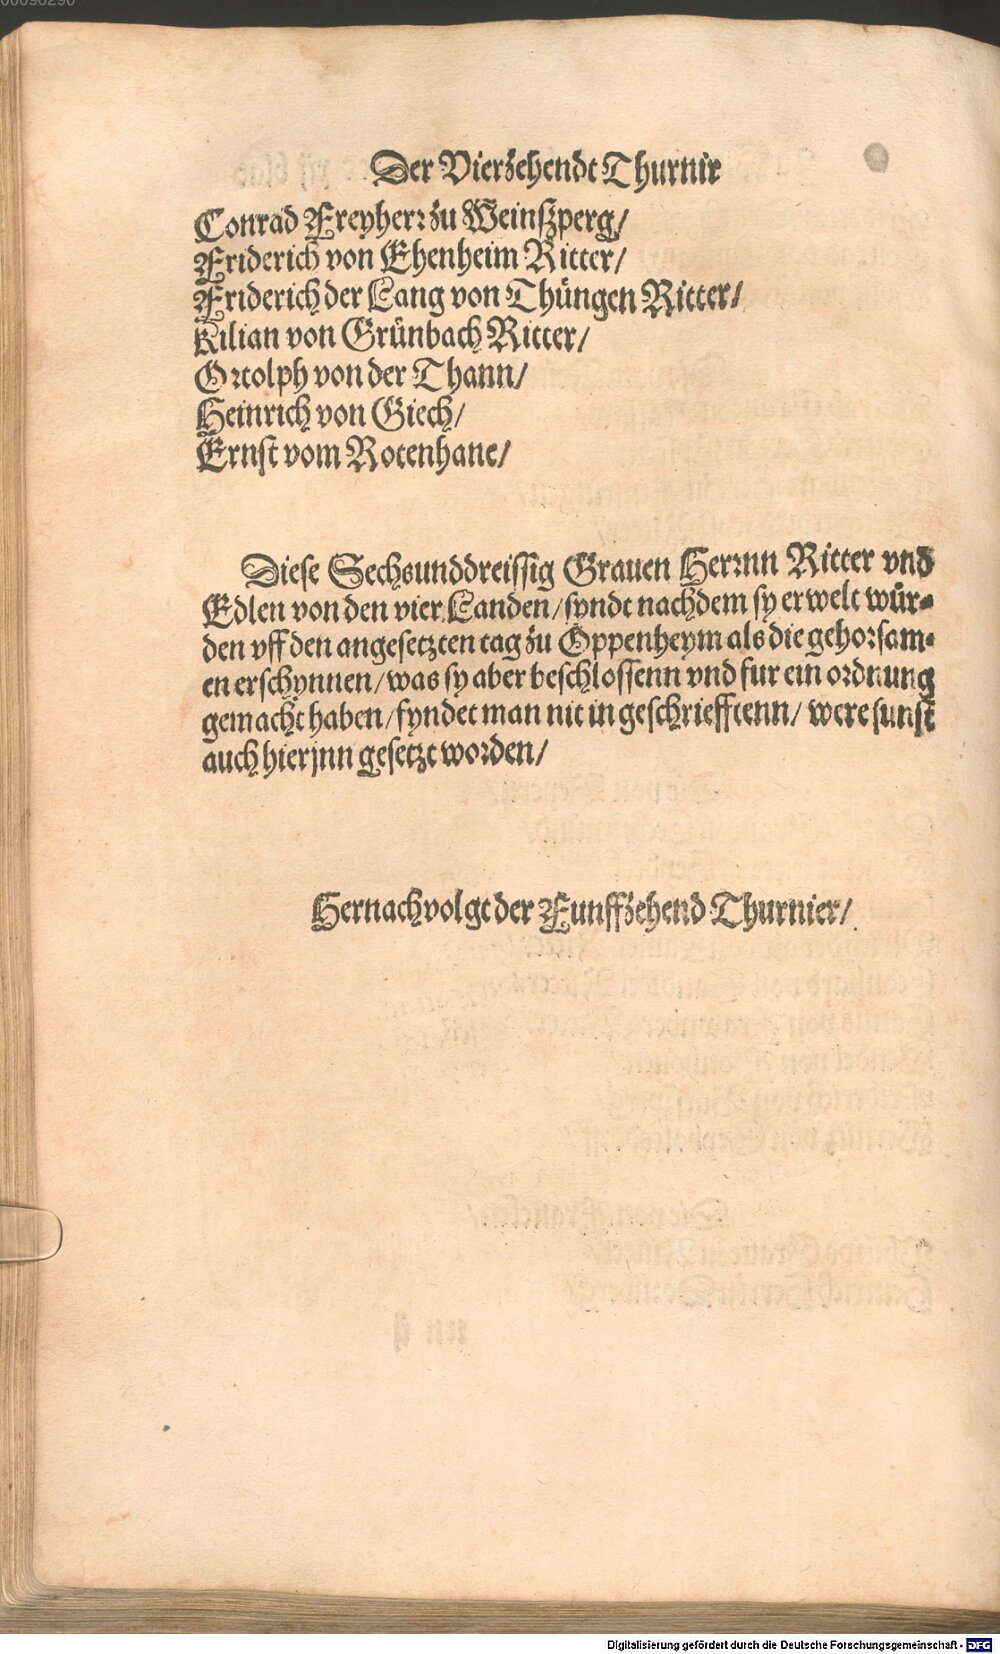 Der Vierzehendt Thurnir
Conrad Freyherr zu Weinßperg/
Friderich von Ehenheim Ritter/
Friderich der Lang von Thüngen Ritter/
Kilian von Grünbach Ritter/
Ortolph von der Thann/
Heinrich von Giech/
Ernst vom Rotenhane/
Diese Sechsunddreissig Grauen Herrnn Ritter vnd
Edlen von den vier Landen/ syndt nachdem sy erwelt wür-
den vff den angesetzten tag zu Oppenheym als die gehorsam-
en erschynnen/ was sy aber beschlossenn vnd fur ein ordnung
gemacht haben/ fyndet man nit in geschriefftenn/ were sunst
auch hierjnn gesetzt worden/
Hernach volgt der Funffzehend Thurnier/
Digitalisierung gefördert durch die Deutsche Forschungsgemeinschaft - DFG